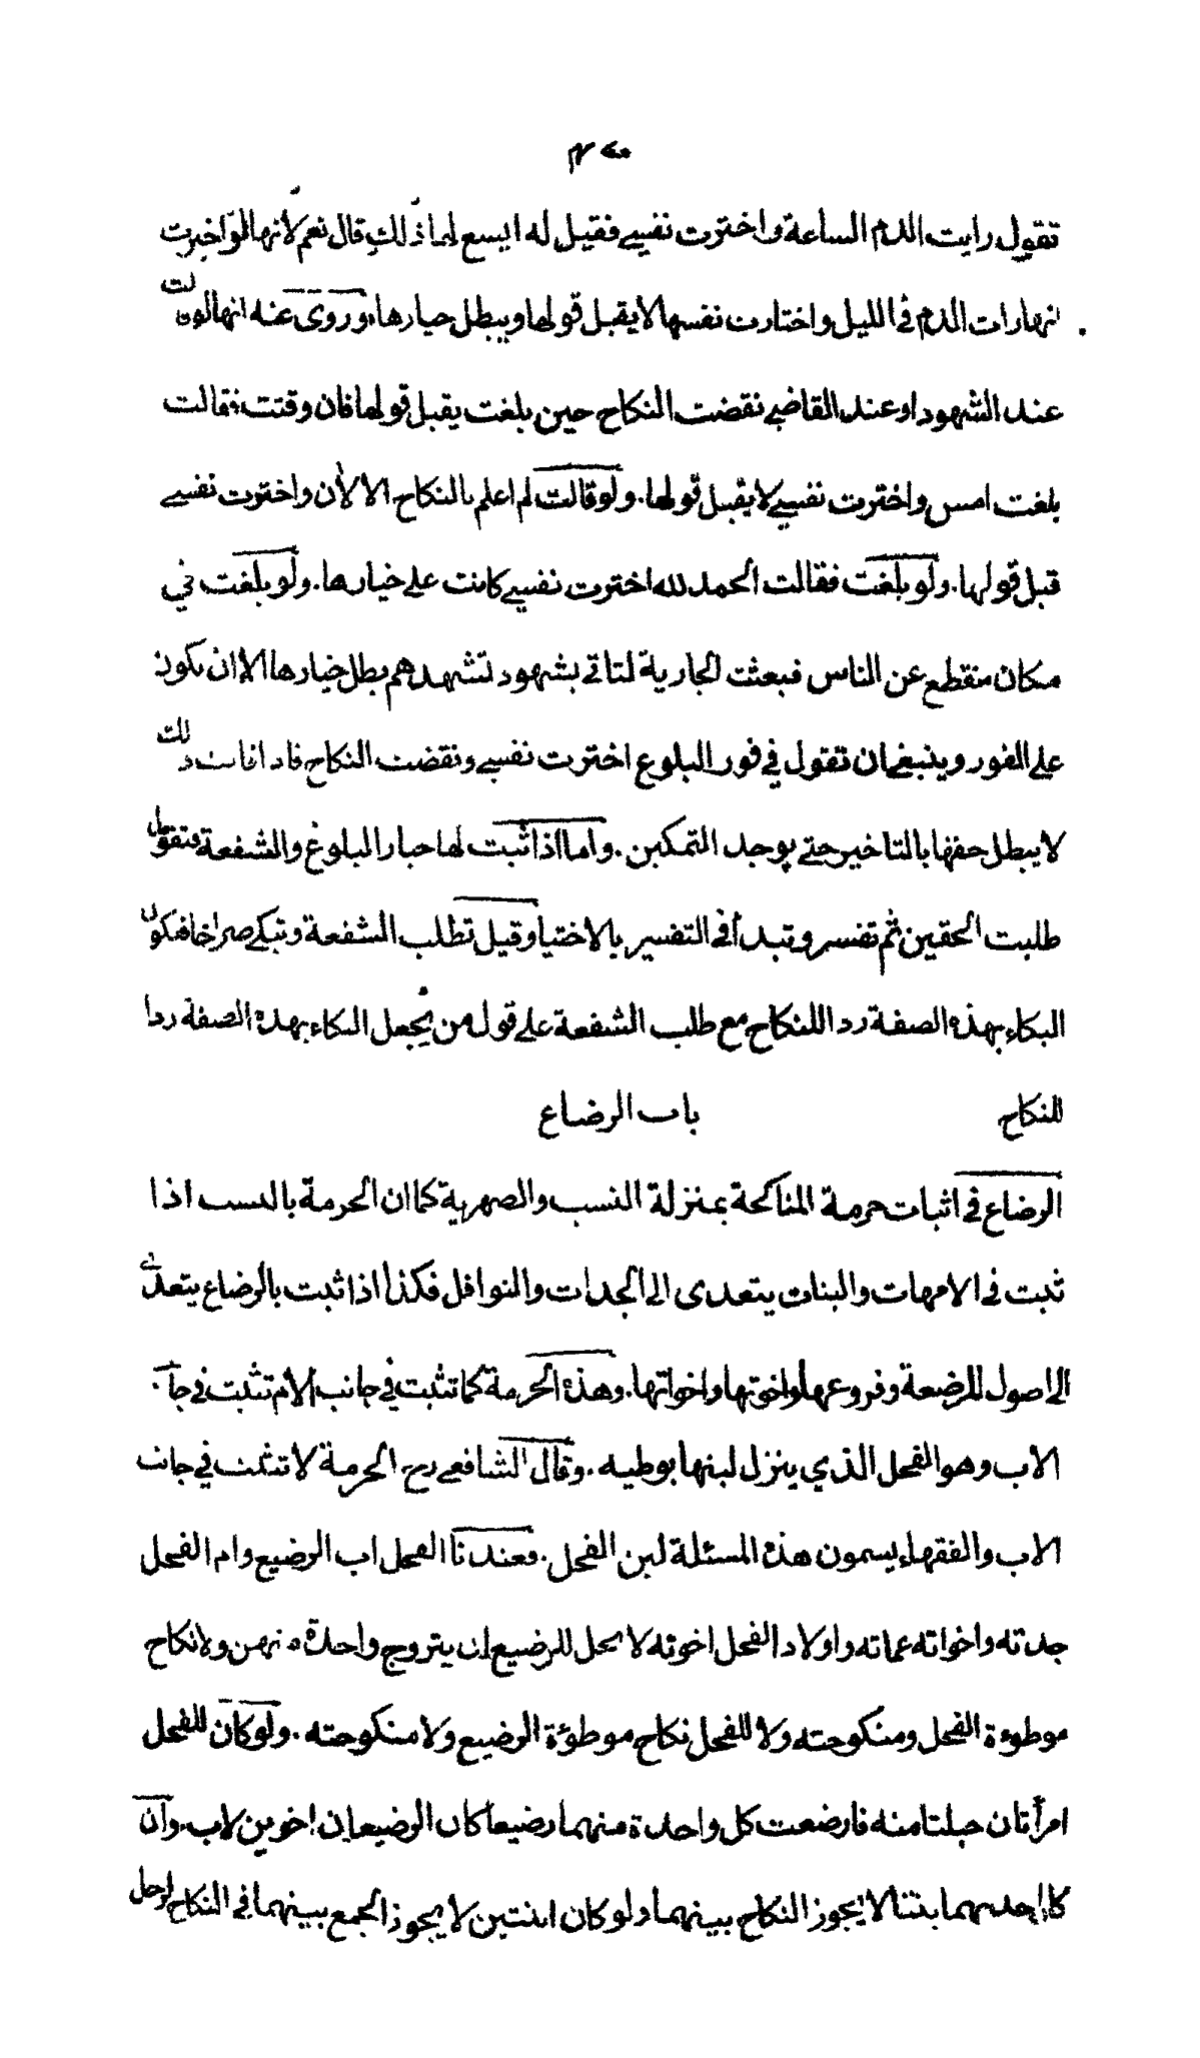 تقول رايت الدم الساعة واخترت نفسي فقيل له ايسع لها ذلك قال نعم لأنها لو اخبرت
انها رات الدم في الليل واختارت نفسها لا يقبل قولها ويبطل خيارها وروى عنه انها لو قالت
عند الشهود او عند القاضي نقضت النكاح حين بلغت يقبل قولها فان وقتت فقالت
بلغت امس واخترت نفسي لا يقبل قولها. ولو قالت لم اعلم بالنكاح الا الأن واخترت نفسي
قبل قولها. ولو بلغت فقالت الحمد لله اخترت نفسي كانت على خيارها. ولو بلغت في
مكان منقطع عن الناس فبعثت الجارية لتاتي بشهود تشهدهم بطل خيارها الا ان يكون
على الفور وينبغي ان تقول في فور البلوغ اخترت نفسي ونقضت النكاح فاذا قالت ذلك
لا يبطل حقها بالتاخير حتى يوجد التمكين. واما اذا ثبت لها خيار البلوغ والشفعة فتقول
طلبت الحقين ثم تفسر وتبدأ في التفسير بالاختيار وقيل تطلب الشفعة وتبكي صراخا فيكون
البكاء بهذه الصفة رد اللنكاح مع طلب الشفعة على قول من يجعل البكاء بهذه الصفة ردا
للنكاح باب الرضاع
الرضاع في اثبات حرمة المناكحة بمنزلة النسب والصهرية كما ان الحرمة بالنسب اذا
ثبت في الامهات والبنات يتعدى الى الجدات والنوافل فكذا اذا ثبت بالرضاع يتعدى
الى اصول المرضعة وفروعها واخوتها واخواتها. وهذه الحرمة كما تثبت في جانب الأم تثبت في جانب
الاب وهو الفحل الذي ينزل لبنها بوطيه. وقال الشافعي رح الحرمة لا تثبت في جانب
الاب والفقهاء يسمون هذه المسئلة لبن الفحل. وعندنا الفحل اب الرضيع وام الفحل
جدته واخواته عماته واولاد الفحل اخوته لا يحل للرضيع ان يتزوج واحدة منهن ولا نكاح
موطوءة الفحل ومنكوحته ولا للفحل نكاح موطؤة الرضيع ولا منكوحته. ولو كان للفحل
امرأتان حبلتا منه فارضعت كل واحدة منهما رضيعا كان الرضيعان اخوين لاب. وان
كان احدهما بنتا لا يجوز النكاح بينهما ولو كان ابنتين لا يجوز الجمع بينهما في النكاح لرجل